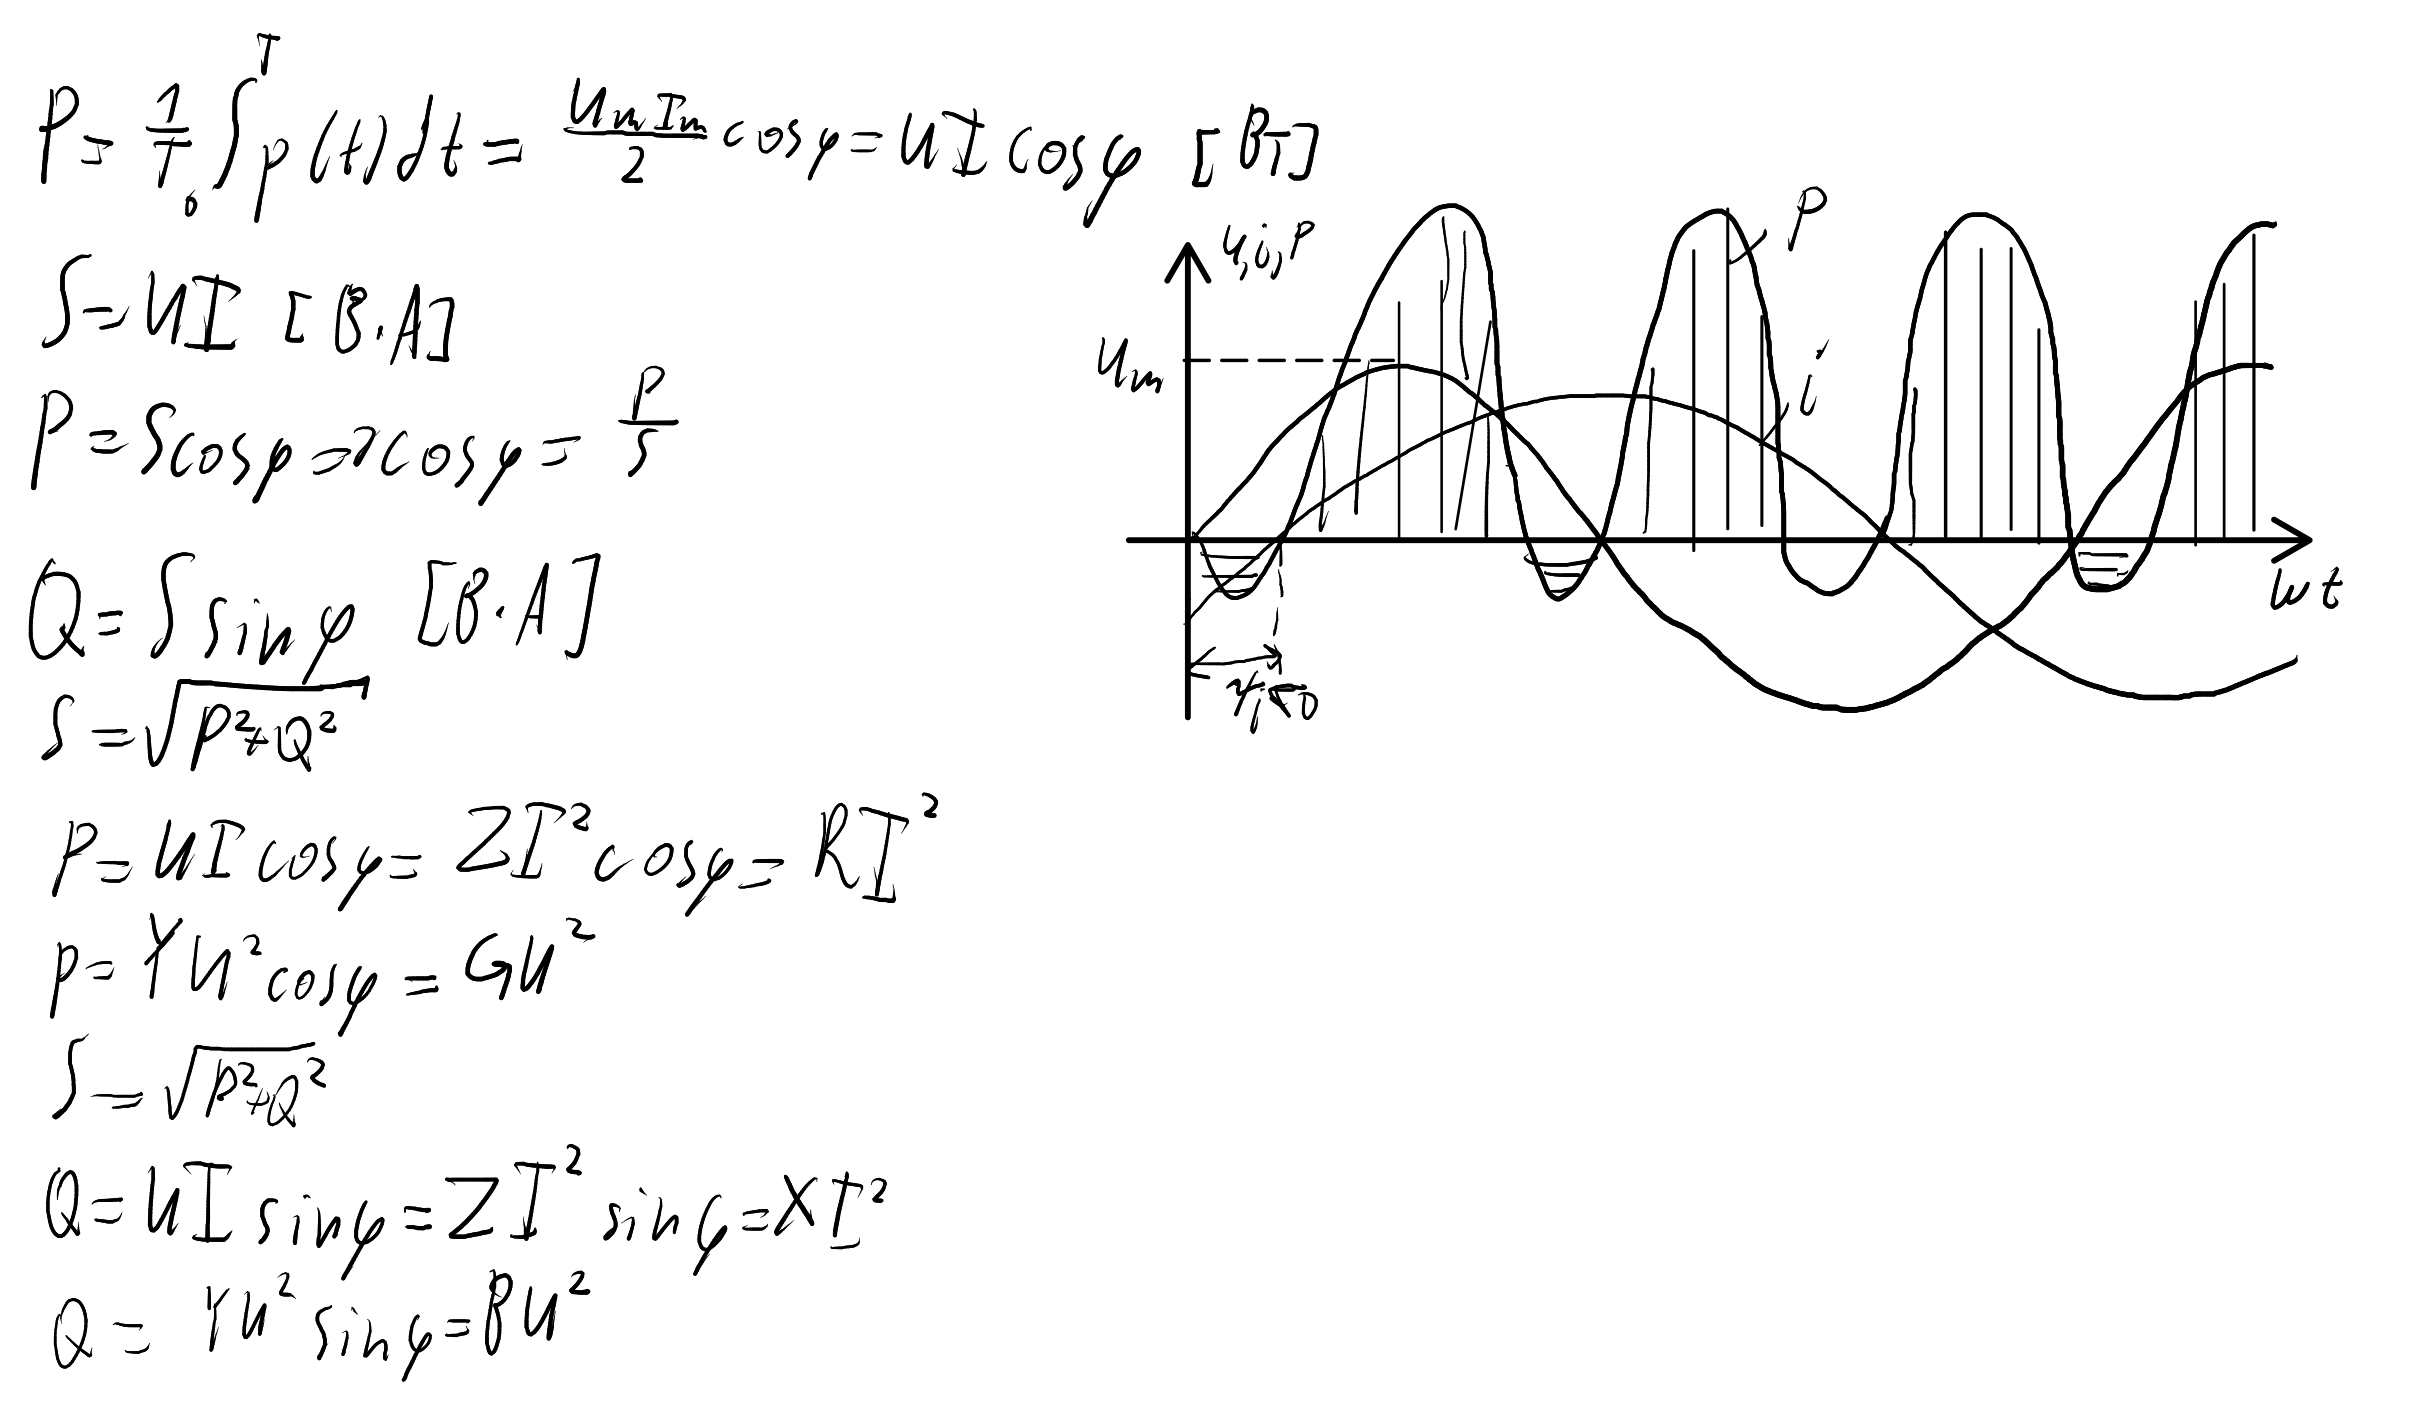 P = 1/T ∫₀ᵀ p(t)dt = UmIm/2 cosφ = UI cosφ [Вт]
S = UI [В·А]
P = S cosφ => cosφ = P/S
Q = S sinφ [В·А]
S = √(P²+Q²)
P = UI cosφ = ZI² cosφ = RI²
P = YU² cosφ = GU²
S = √(P²+Q²)
Q = UI sinφ = ZI² sinφ = XI²
Q = YU² sinφ = BU²
u,i,p
Um
P
i
ωt
ψi<0